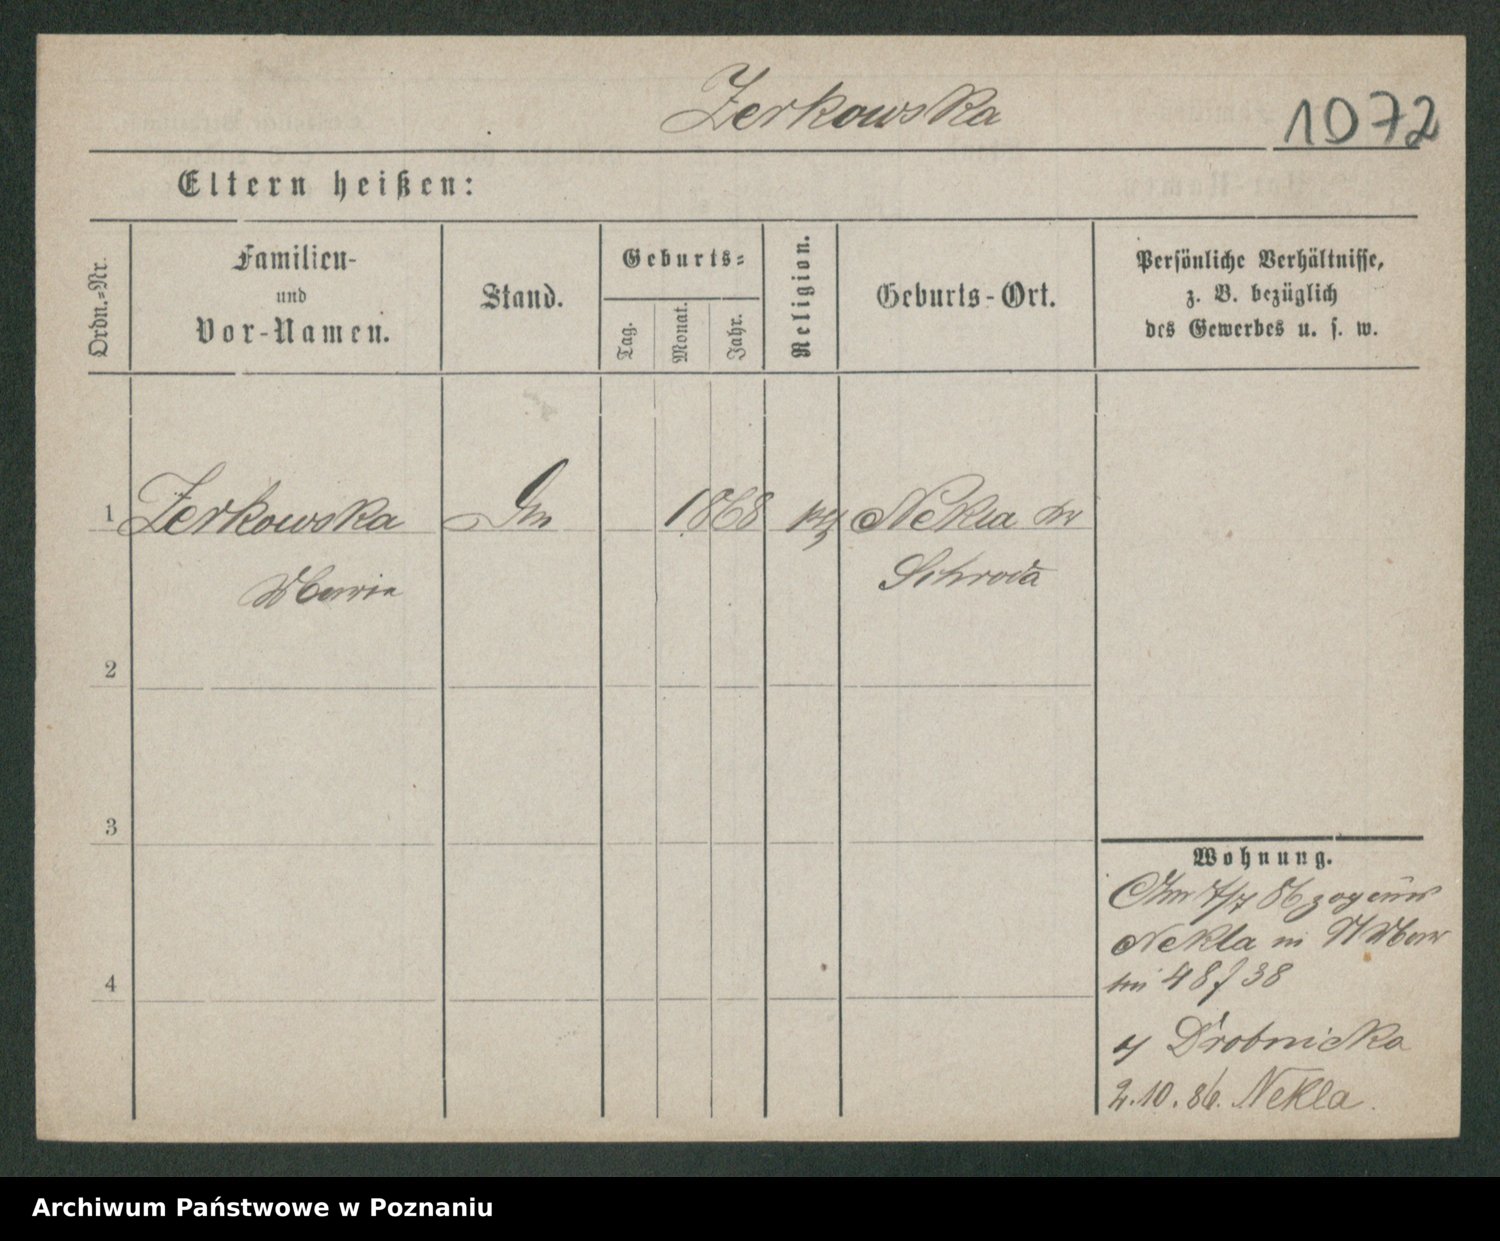 Zerkowska
1072
Eltern heißen:
Ordn.=Nr.
Familien-
und
Vor-Namen.
Stand.
Geburts=
Tag.
Monat.
Jahr.
Religion.
Geburts-Ort.
Persönliche Verhältnisse,
z. B. bezüglich
des Gewerbes u. s. w.
1 Zerkowska 1868 Nekla Kr
Maria Schroda
2
3
4
Wohnung.
86 zog aus
Nekla in
48 / 38
Drobnicka
2.10.86. Nekla.
Archiwum Państwowe w Poznaniu